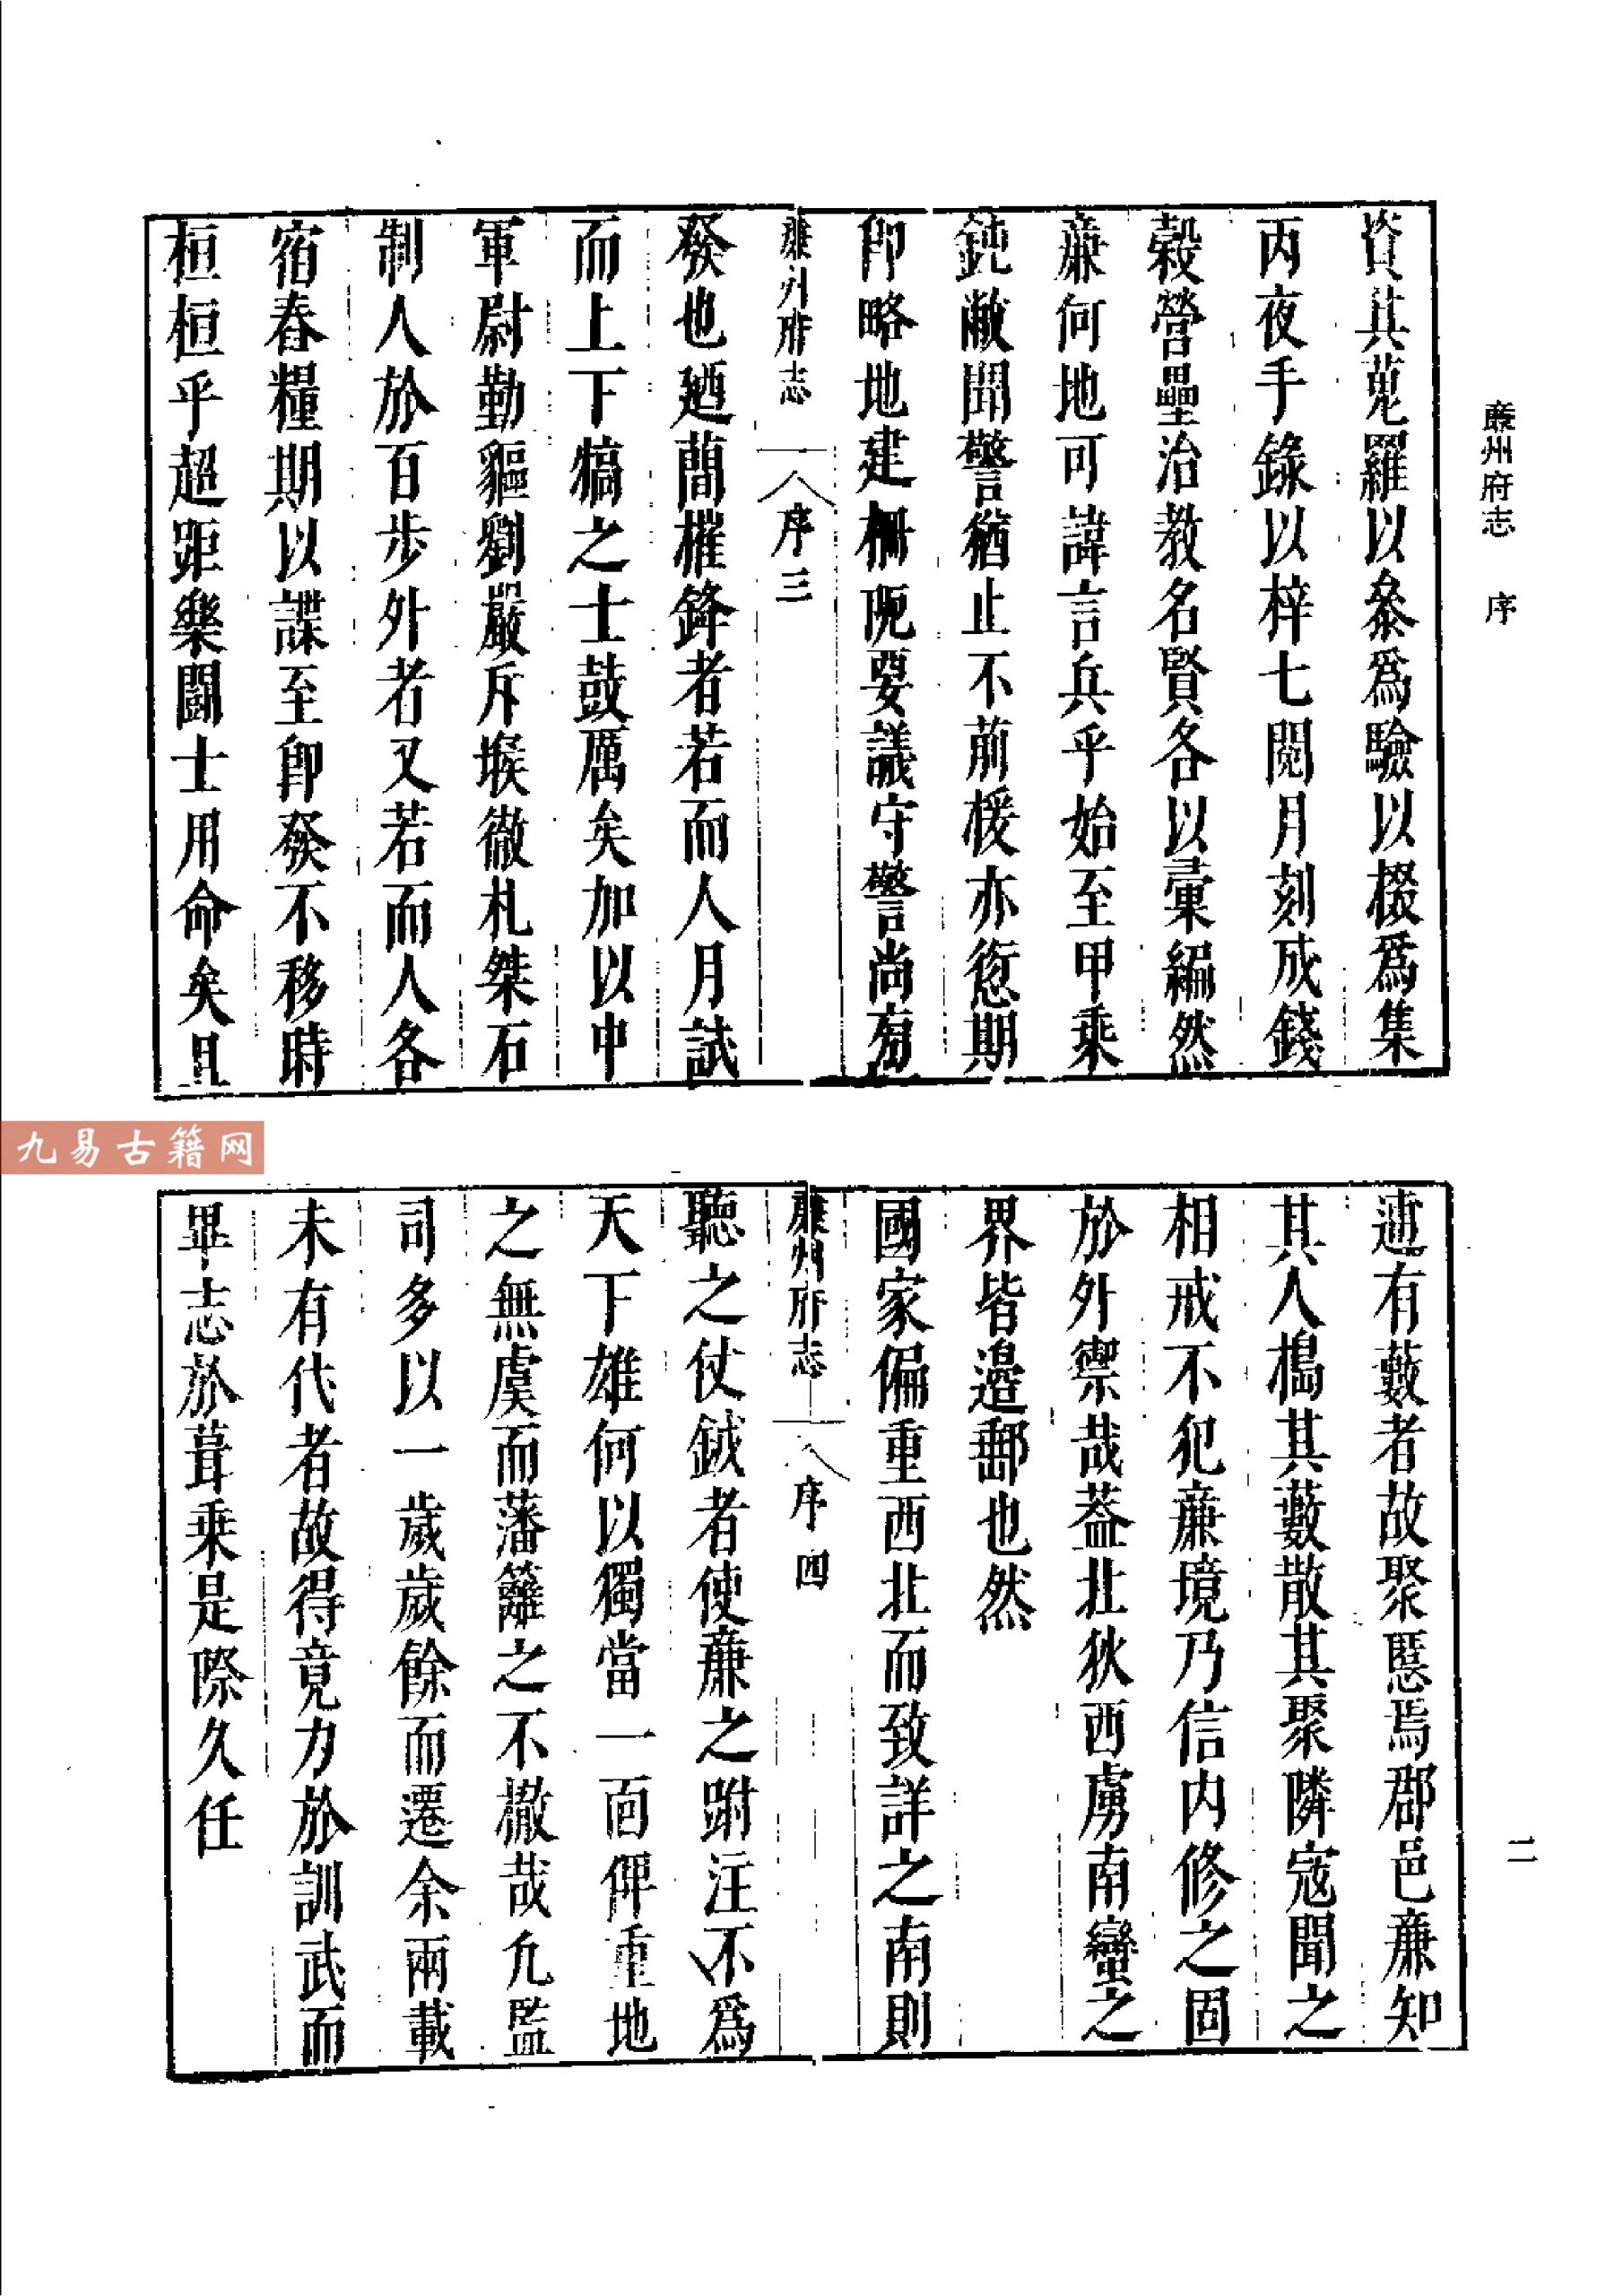 廉州府志 序
資其蒐羅以叅爲驗以掇爲集
丙夜手錄以梓七閱月刻成錢
穀營壘治教名賢各以彙編然
廉何地可諱言兵乎始至甲乘
鈍敝聞警猶止不前援亦愆期
卽略地建柵阨要議守警尚有
廉州府志 序 三
發也廼蕳櫂鋒者若而人月試
而上下犒之士鼓厲矣加以中
軍尉勤軀劉嚴斥堠徹札桀石
制人於百步外者又若而人各
宿舂糧期以諜至卽發不移時
桓桓乎超距樂鬭士用命矣且
九易古籍网
逋有藪者故聚慝焉郡邑廉知
其人搗其藪散其聚隣宼聞之
相戒不犯廉境乃信内修之固
於外禦哉葢北狄西虜南蠻之
界皆邉郵也然
國家偏重西北而致詳之南則
廉州府志 序 四
聽之仗鉞者使廉之跗注不爲
天下雄何以獨當一面俾重地
之無虞而藩籬之不撤哉凢監
司多以一歲歲餘而遷余兩載
未有代者故得竟力於訓武而
畢志於葺乗是際久任
二